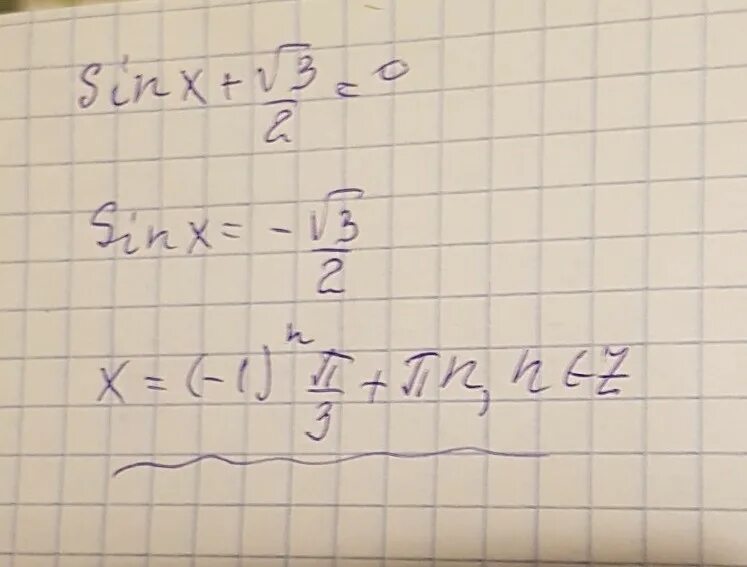 Sin x + √3/2 = 0
Sin x = - √3/2
x = (-1)ⁿ π/3 + πn, n ∈ Z